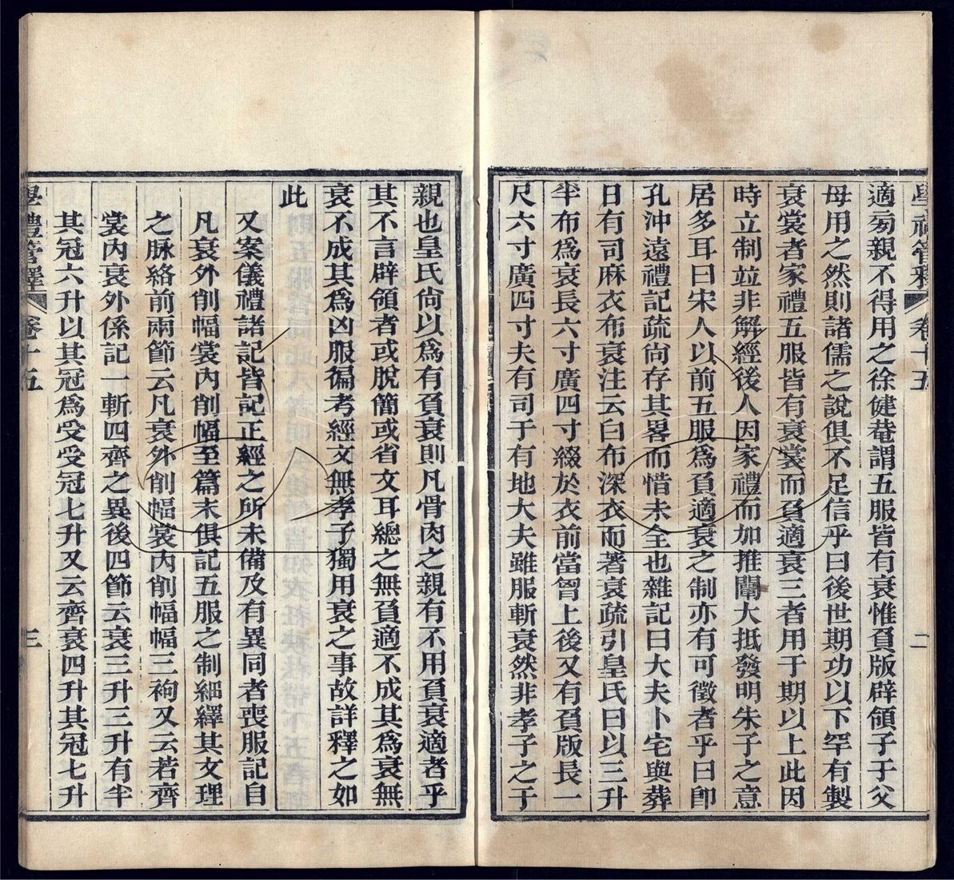 學禮管釋 卷十五 二
適旁親不得用之徐健菴謂五服皆有衰惟負版辟領子于父
母用之然則諸儒之說俱不足信乎曰後世期功以下罕有製
衰裳者家禮五服皆有衰裳而負適衰三者用于期以上此因
時立制竝非解經後人因家禮而加推闡大抵發明朱子之意
居多耳曰宋人以前五服爲負適衰之制亦有可徵者乎曰卽
孔沖遠禮記疏尙存其畧而惜未全也雜記曰大夫卜宅與葬
日有司麻衣布衰注云白布深衣而著衰疏引皇氏曰以三升
半布爲衰長六寸廣四寸綴於衣前當胷上後又有負版長一
尺六寸廣四寸夫有司于有地大夫雖服斬衰然非孝子之于
親也皇氏尙以爲有負衰則凡骨肉之親有不用負衰適者乎
其不言辟領者或脫簡或省文耳總之無負適不成其爲衰無
衰不成其爲凶服徧考經文無孝子獨用衰之事故詳釋之如
此
又案儀禮諸記皆記正經之所未備及有異同者喪服記自
凡衰外削幅裳內削幅至篇末俱記五服之制細繹其文理
之脉絡前兩節云凡衰外削幅裳內削幅幅三袧又云若齊
裳內衰外係記一斬四齊之異後四節云衰三升三升有半
其冠六升以其冠爲受受冠七升又云齊衰四升其冠七升
學禮管釋 卷十五 三